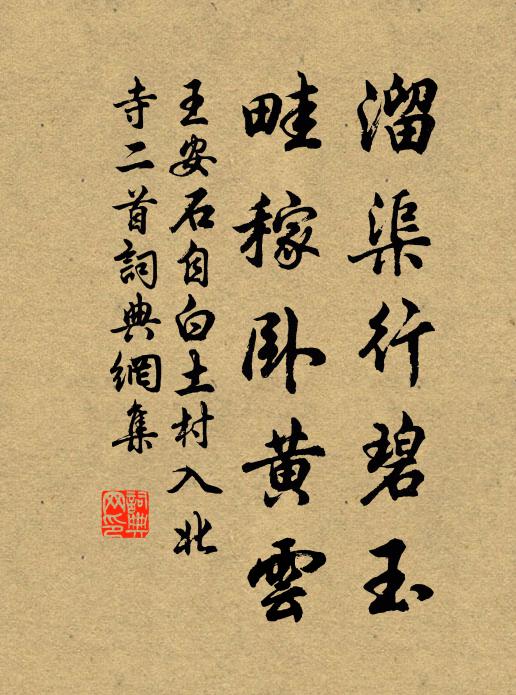 溜渠行碧玉
畦稼卧黄雲
王安石自白土村入北
寺二首詞典網集
詞典
网印